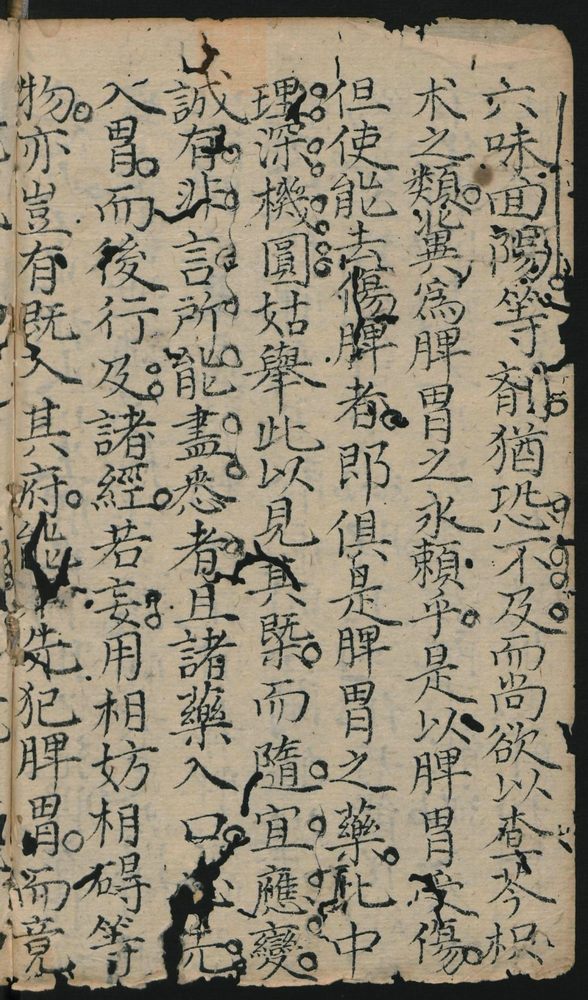 六味回陽等劑猶恐不及而尚欲以查芩枳
朮之類冀為脾胃之永賴乎是以脾胃受傷
但使能去傷脾者即俱是脾胃之藥此中
理深機圓姑舉此以見其槩而隨宜應變
誠有非言所能盡悉者且諸藥入口必先
入胃而後行及諸經若妄用相妨相碍等
物亦豈有既入其府能不先犯脾胃而竟